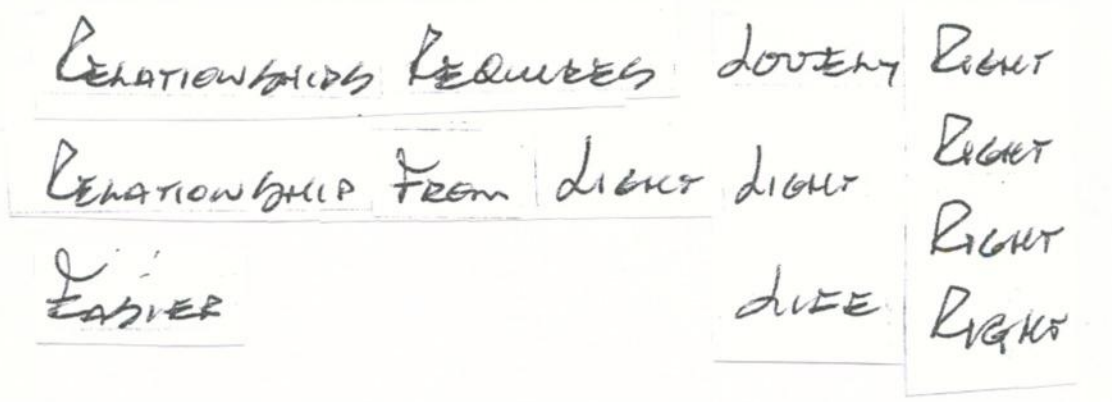 RELATIONSHIPS REQUIRES LOVELY RIGHT
RELATIONSHIP FROM LIGHT LIGHT RIGHT
RIGHT
EASIER LIFE RIGHT